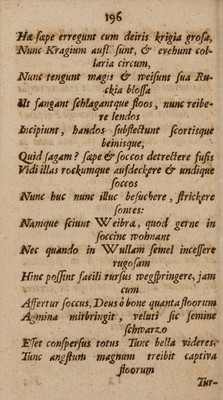 196
Hæ sæpe erregunt cum deiris krigia grosa,
Nunc Kragium aufs. sunt, & evehunt col-
laria circum,
Nunc tengunt magis & weisunt sua Ru-
ckia blossa
Ut fangant schlagantque floos, nunc reibe-
re lendos
Incipiunt, handos subflectunt scortisque
beinisque,
Quid sagam? sæpe & soccos detrectere fusis
Vidi illas rockumque aufdeckere & undique
soccos
Nunc huc nunc illuc besuchere, strickere
fontes:
Namque sciunt Weibræ, quod gerne in
soccine wohnant
Nec quando in Wullam semel incessere
rugosam
Hinc possint facili rursus wegspringere, jam
cum
Affertur soccus, Deus ô bone quanta floorum
Agmina mitbringit, veluti sic semine
schwarzo
Esset conspersus totus Tunc bella videres,
Tunc angstum magnum treibit captiva
floorum
Tur-